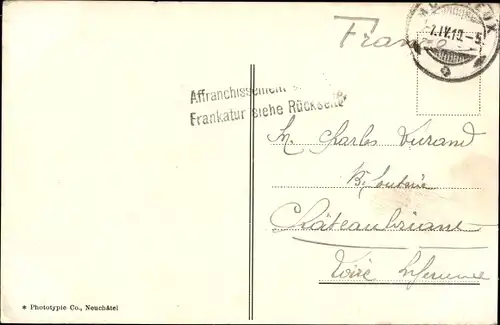 France
7.IV.10.-5
Affranchissement
Frankatur siehe Rückseite
M. Charles Durand
Châteaubriant
Loire Inferieure
* Phototypie Co., Neuchâtel